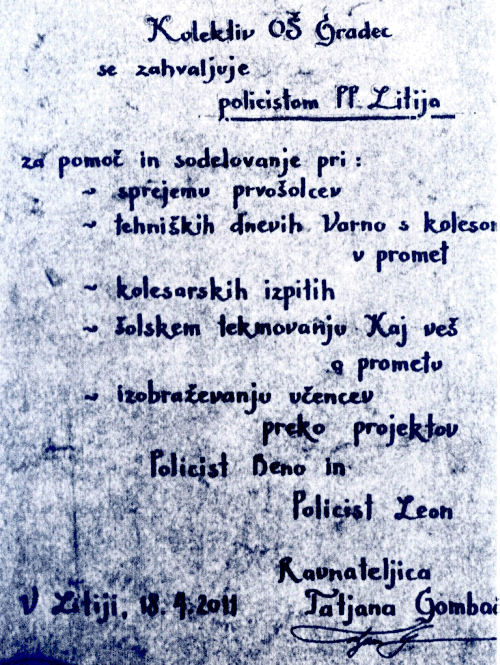 Kolektiv OŠ Gradec
se zahvaljuje
policistom PP Litija
za pomoč in sodelovanje pri :
~ sprejemu prvošolcev
~ tehniških dnevih Varno s kolesom
v promet
~ kolesarskih izpitih
~ šolskem tekmovanju Kaj veš
o prometu
~ izobraževanju učencev
preko projektov
Policist Beno in
Policist Leon
Ravnateljica
V Litiji, 18. 4. 2011 Tatjana Gombač